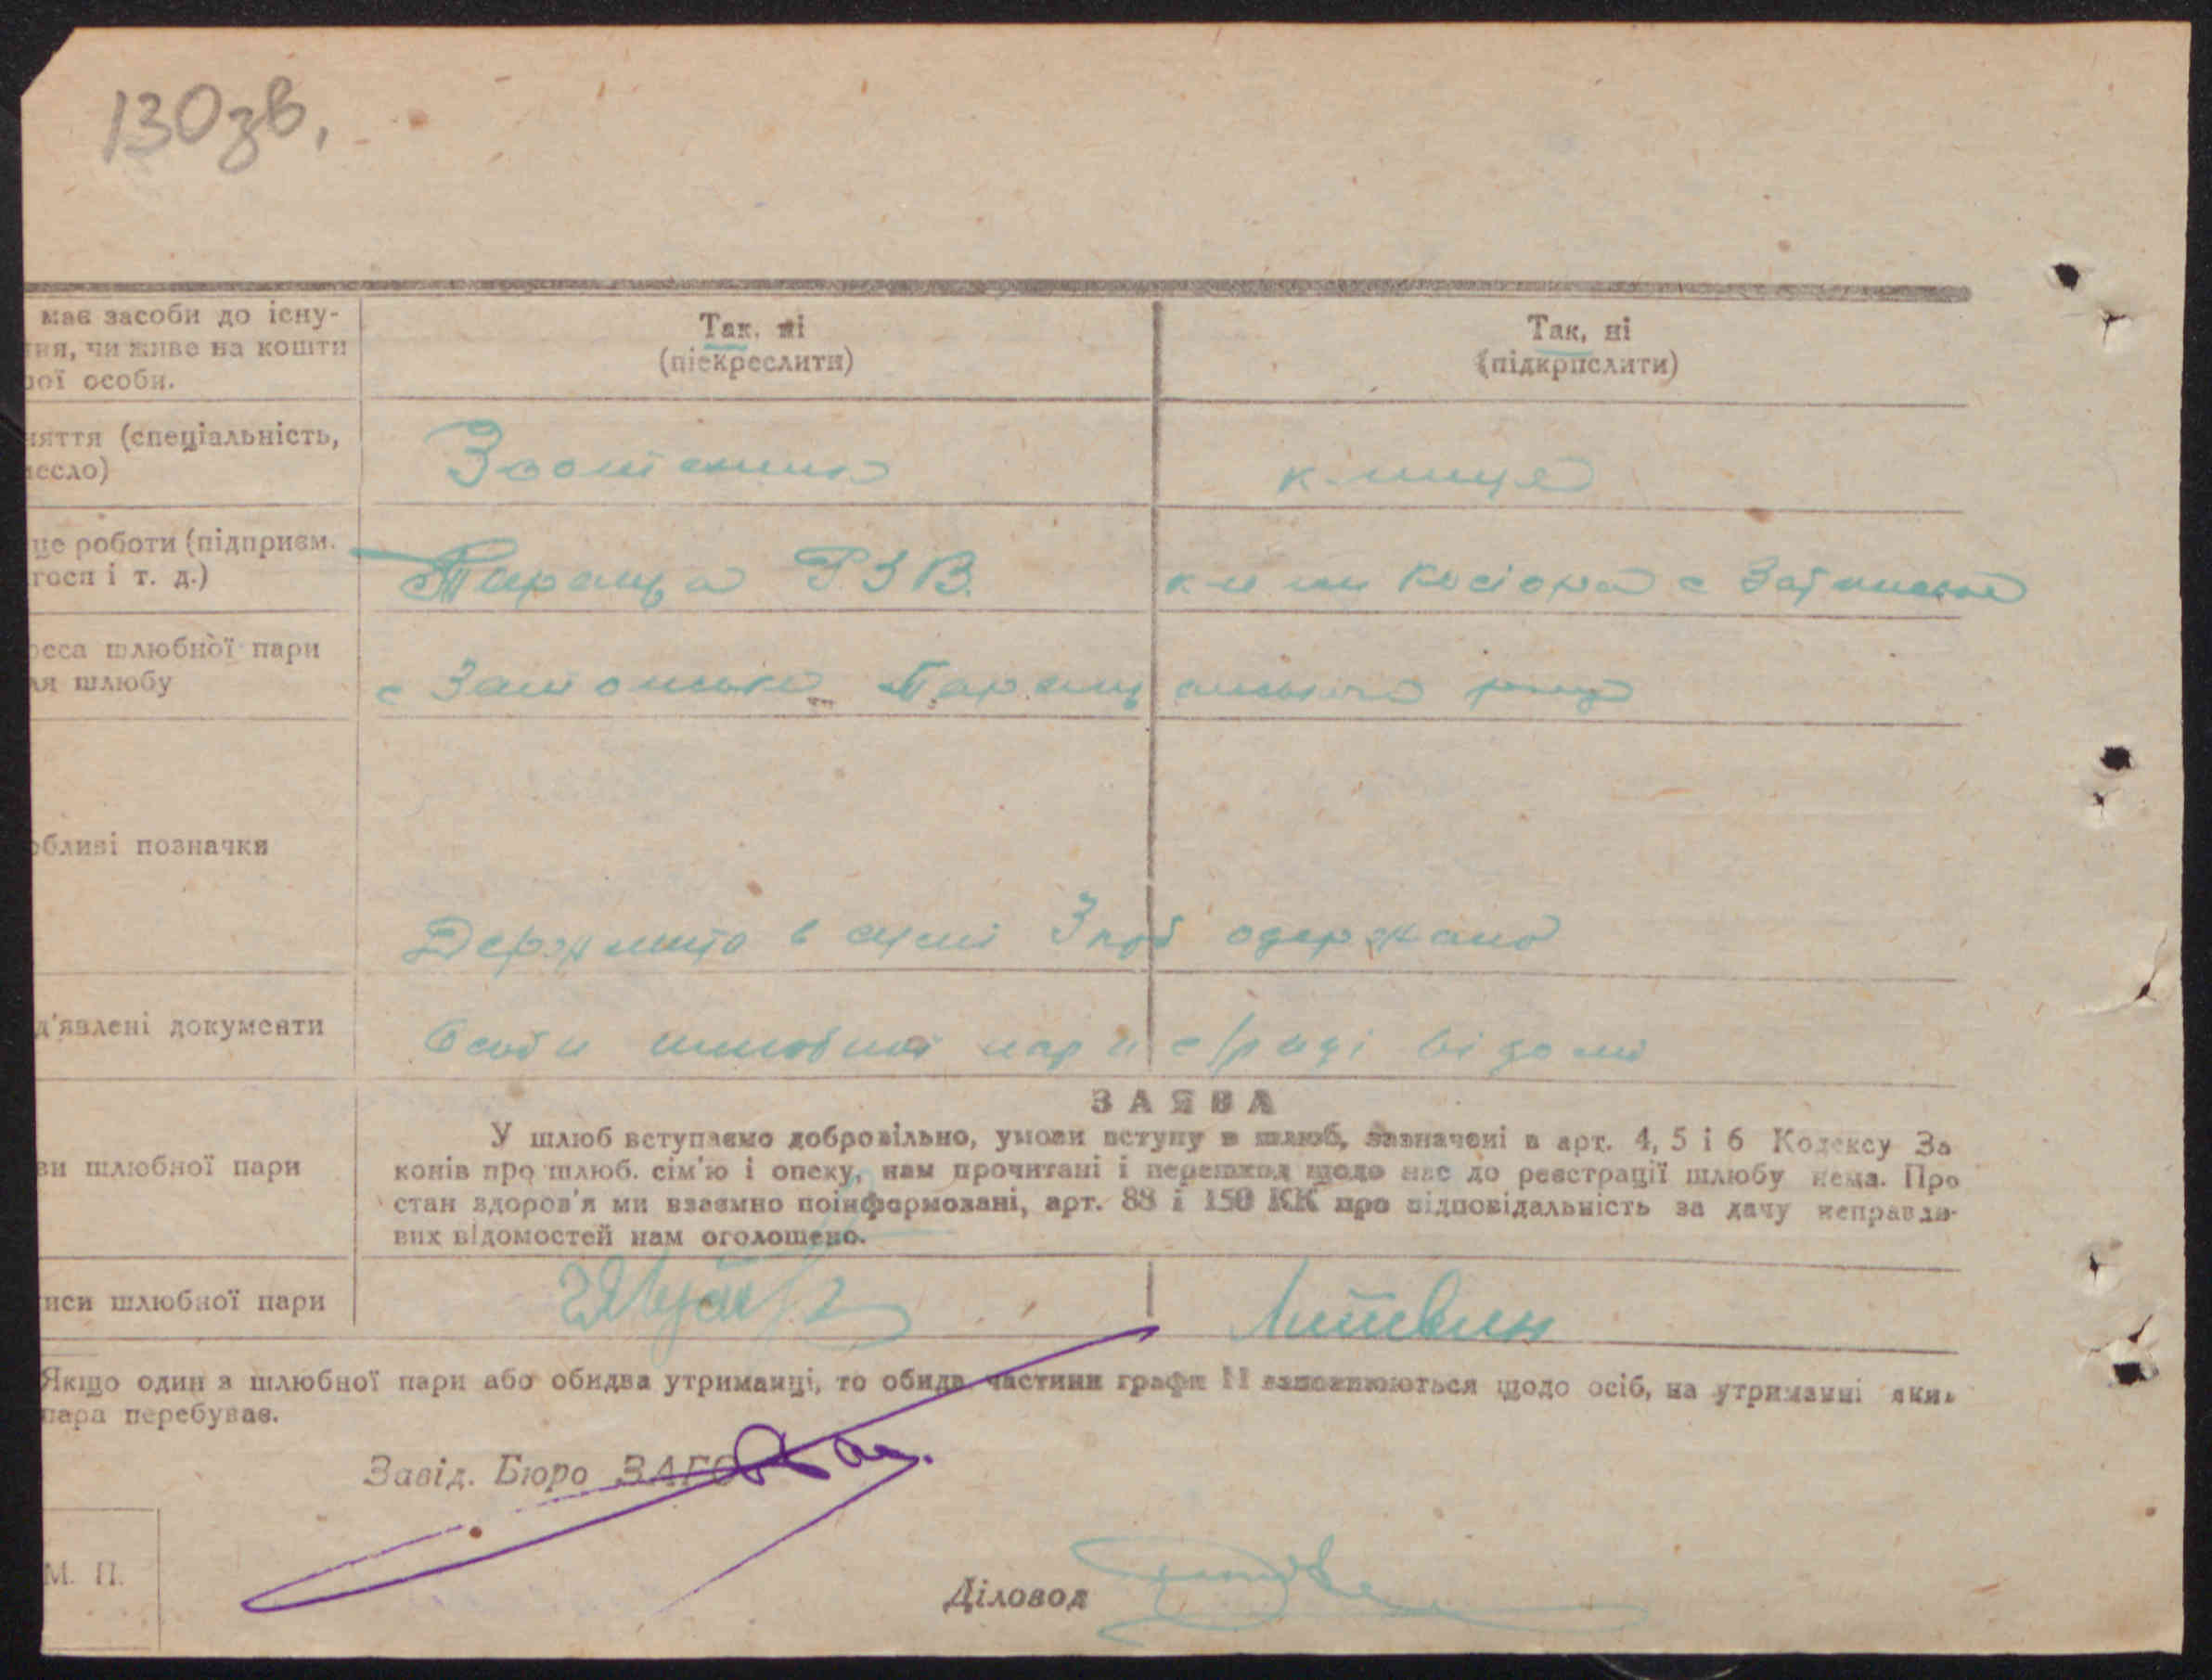 130зв.
має засоби до існу-
ння, чи живе на кошти
ої особи.
Так, ні
(піскреслити)
Так, ні
(підкрпслити)
няття (спеціальність,
есло)
Зоотехник
к-ниця
це роботи (підприєм.
госп і т. д.)
Тараща РЗВ.
к-п ім Косіора с
реса шлюбної пари
ля шлюбу
с Таращанського р-ну
обливі позначки
Держмито в сумі 3 крб одержано
д'явлені документи
Особи шлюбної пари с/раді відомі
ЗАЯВА
ви шлюбної пари
У шлюб вступаємо добровільно, умови вступу в шлюб, зазначені в арт. 4, 5 і 6 Кодексу За
конів про шлюб. сім'ю і опеку, нам прочитані і перешкод щодо нас до реєстрації шлюбу нема. Про
стан здоров'я ми взаємно поінформовані, арт. 88 і 150 КК про відповідальність за дачу неправди-
вих відомостей нам оголошено.
иси шлюбної пари
Литвин
Якщо один з шлюбної пари або обидва утриманці, то обидв частини графи 11 заповнюються щодо осіб, на утриманні яких
пара перебуває.
Завід. Бюро ЗАГС
М. П.
Діловод